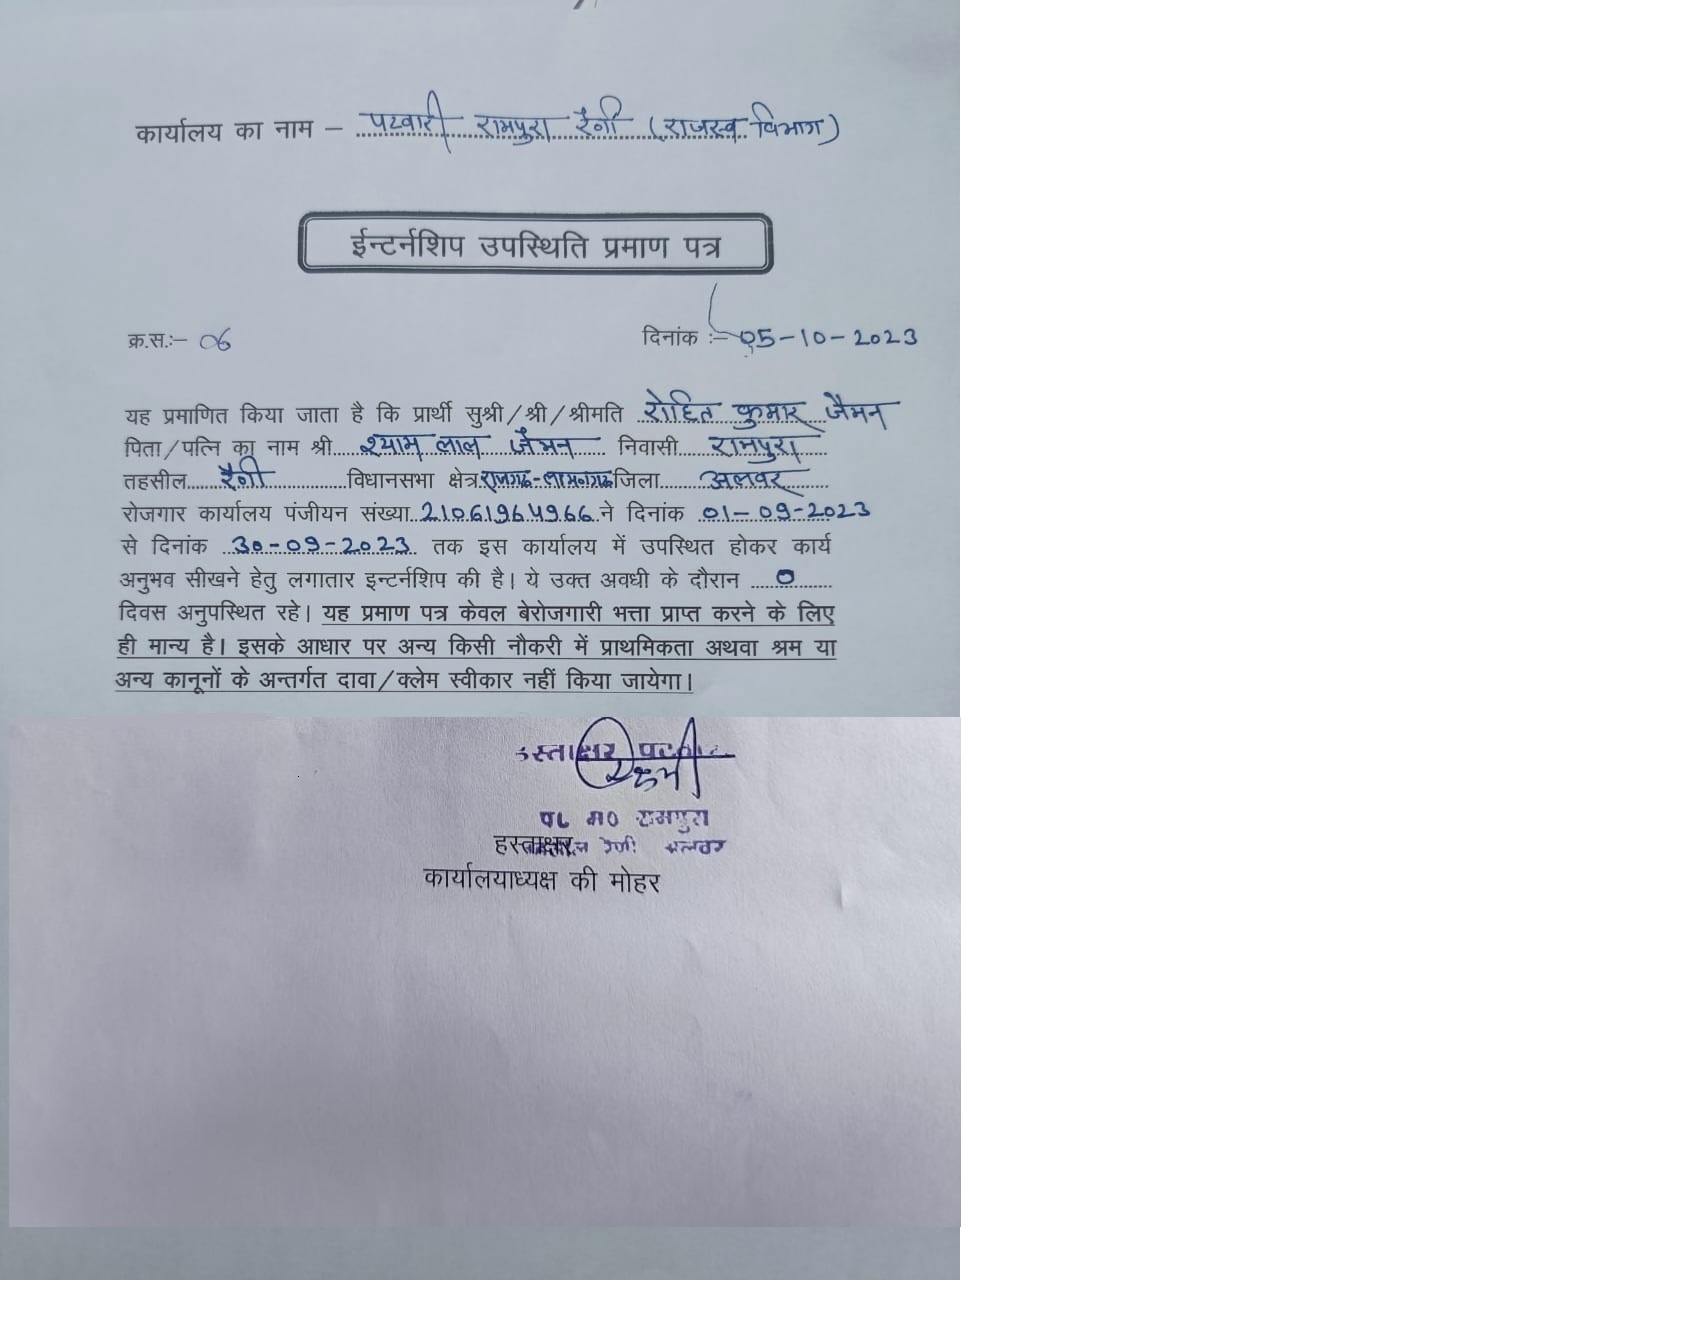 कार्यालय का नाम – पटवारी रामपुरा रैणी (राजस्व विभाग)
ईन्टर्नशिप उपस्थिति प्रमाण पत्र
क्र.स.:– 06 दिनांक :– 05-10-2023
यह प्रमाणित किया जाता है कि प्रार्थी सुश्री/श्री/श्रीमति रोहित कुमार जैमन
पिता/पत्नि का नाम श्री श्याम लाल जैमन निवासी रामपुरा
तहसील रैणी विधानसभा क्षेत्र राजगढ-लक्ष्मणगढ जिला अलवर
रोजगार कार्यालय पंजीयन संख्या 21061964966 ने दिनांक 01-09-2023
से दिनांक 30-09-2023 तक इस कार्यालय में उपस्थित होकर कार्य
अनुभव सीखने हेतु लगातार इन्टर्नशिप की है। ये उक्त अवधी के दौरान 0
दिवस अनुपस्थित रहे। यह प्रमाण पत्र केवल बेरोजगारी भत्ता प्राप्त करने के लिए
ही मान्य है। इसके आधार पर अन्य किसी नौकरी में प्राथमिकता अथवा श्रम या
अन्य कानूनों के अन्तर्गत दावा/क्लेम स्वीकार नहीं किया जायेगा।
हस्ताक्षर
प० म० रामपुरा
हस्ताक्षर रैणी अलवर
कार्यालयाध्यक्ष की मोहर